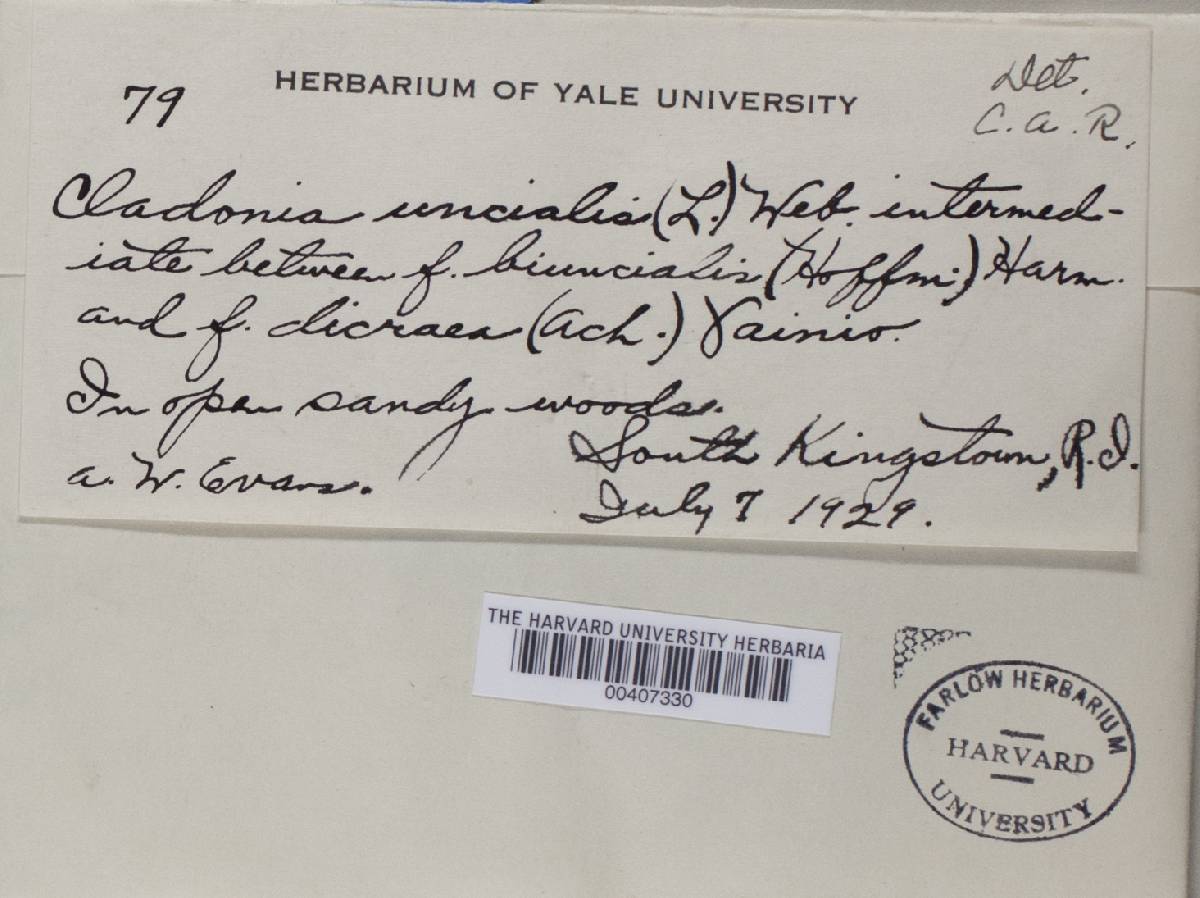 79
HERBARIUM OF YALE UNIVERSITY
Det.
C. a. R.
Cladonia uncialis (L.) Web. intermed-
iate between f. biuncialis (Hoffm.) Harm.
and f. dicraea (Ach.) Vainio.
In open sandy woods.
South Kingstown, R.I.
a. W. Evans.
July 7 1929.
THE HARVARD UNIVERSITY HERBARIA
00407330
FARLOW HERBARIUM
HARVARD
UNIVERSITY